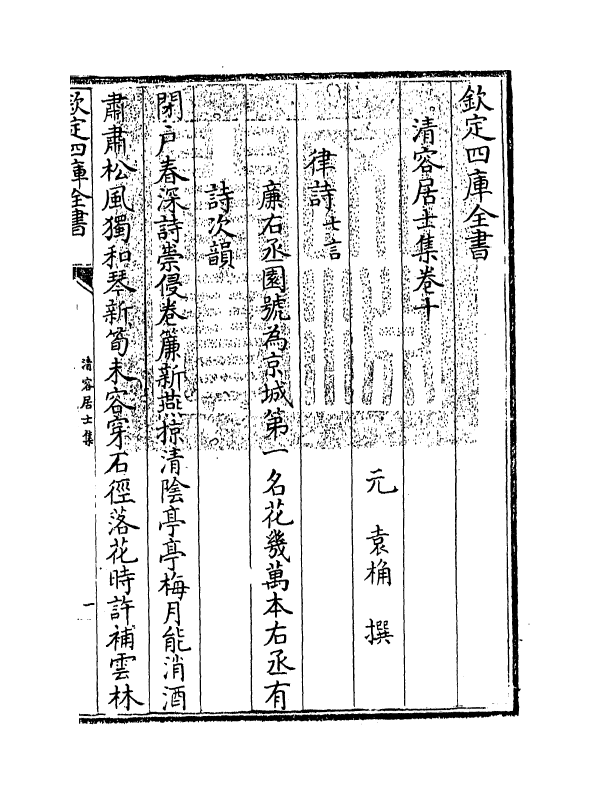 欽定四庫全書
清容居士集卷十
元 袁桷 撰
律詩七言
廉右丞園號為京城第一名花幾萬本右丞有
詩次韻
閉戶春深詩崇侵卷簾新燕掠清陰亭亭梅月能消酒
肅肅松風獨和琴新筍未容穿石徑落花時許補雲林
欽定四庫全書
清容居士集
一